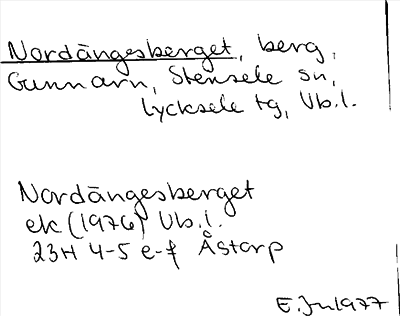 Nordängesberget, berg,
Gunnarn, Stensele sn,
Lycksele tg, Vb.l.
Nordängesberget
ek (1976) Vb.l.
23H 4-5 e-f Åstorp
E.Jn1977